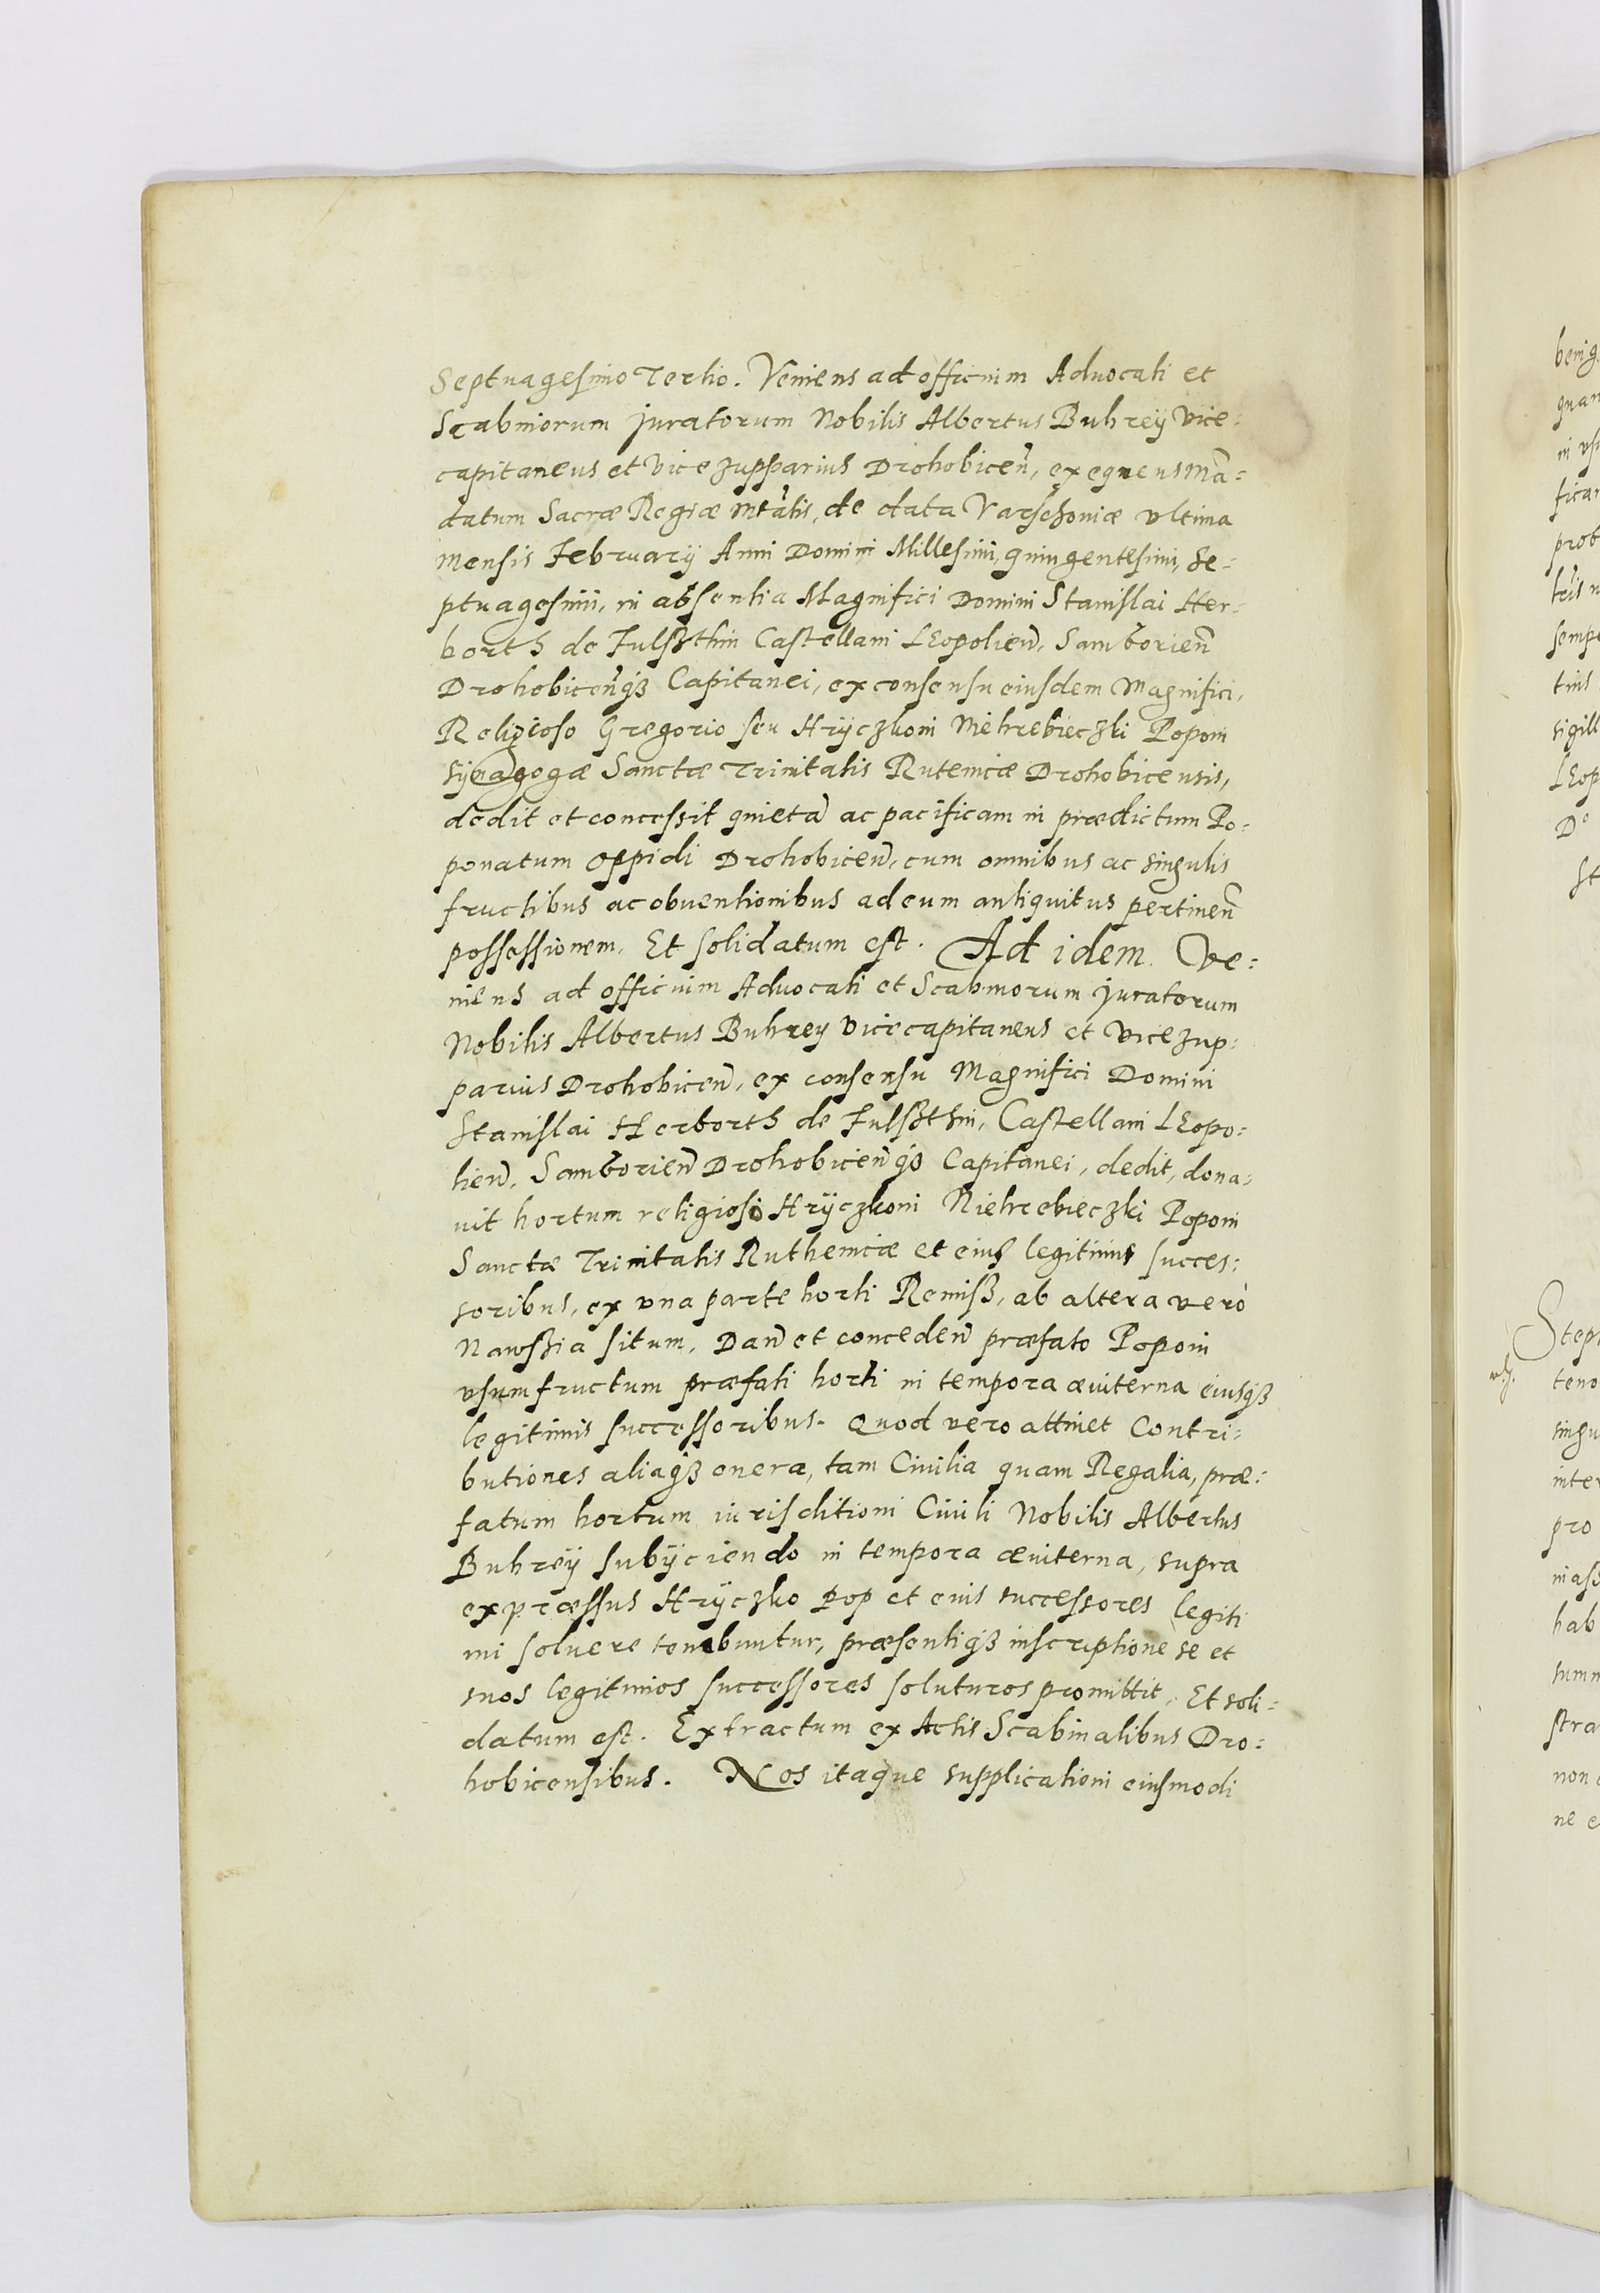 Septuagesimo Tertio. Veniens ad officium Advocati et
Scabinorum juratorum Nobilis Albertus Buhrey Vice-
capitaneus et Vicezupparius Drohobiceñ, exequens mã-
datum Sacræ Regiæ Mtatis, de data Varschoviæ ultima
mensis February Anni Domini Millesimi, quingentesimi, se-
ptuagesimi, in absentia Magnifici Domini Stanislai Her-
borth de Fulsthin Castellani Leopolieñ, Samborieñ
Drohobiceñq3 Capitanei, ex consensu eiusdem Magnifici,
Religioso Gregorio seu Hryczkoni Niehrebieczki Poponi
synagogæ Sanctæ Trinitatis Rutenicæ Drohobicensis,
dedit et concessit quietã ac pacificam in prædictum Po-
ponatum oppidi Drohobiceñ, cum omnibus ac singulis
fructibus ac obventionibus ad eum antiquitus pertineñ
possessionem. Et solidatum est. Ad idem. Ve-
niens ad officium Advocati et Scabinorum juratorum
Nobilis Albertus Buhrey Vicecapitaneus et Vicezup-
parius Drohobiceñ, ex consensu Magnifici Domini
Stanislai Herborth de Fulsthin, Castellani Leopo-
lieñ, Samborieñ Drohobiceñq3 Capitanei, dedit, dona-
vit hortum religioso Hryczkoni Niehrebieczki Poponi
Sanctæ Trinitatis Ruthenicæ et eius legitimis succes-
soribus, ex una parte horti Remiss, ab altera verò
Nawssia situm, Dañ et concedeñ præfato Poponi
usumfructum præfati horti in tempora æviterna eiusq3
legitimis successoribus. Quod vero attinet Contri-
butiones aliaq3 onera, tam Civilia quam Regalia, præ-
fatum hortum iurisditioni Civili Nobilis Albertus
Buhrey subyciendo in tempora æviterna, supra
expræssus Hryczko Pop et eius successores legiti
mi solvere tenebuntur, præsentiq3 inscriptione se et
suos legitimos successores soluturos promittit. Et soli-
datum est. Extractum ex Actis Scabinalibus Dro-
hobicensibus. Nos itaque supplicationi eiusmodi